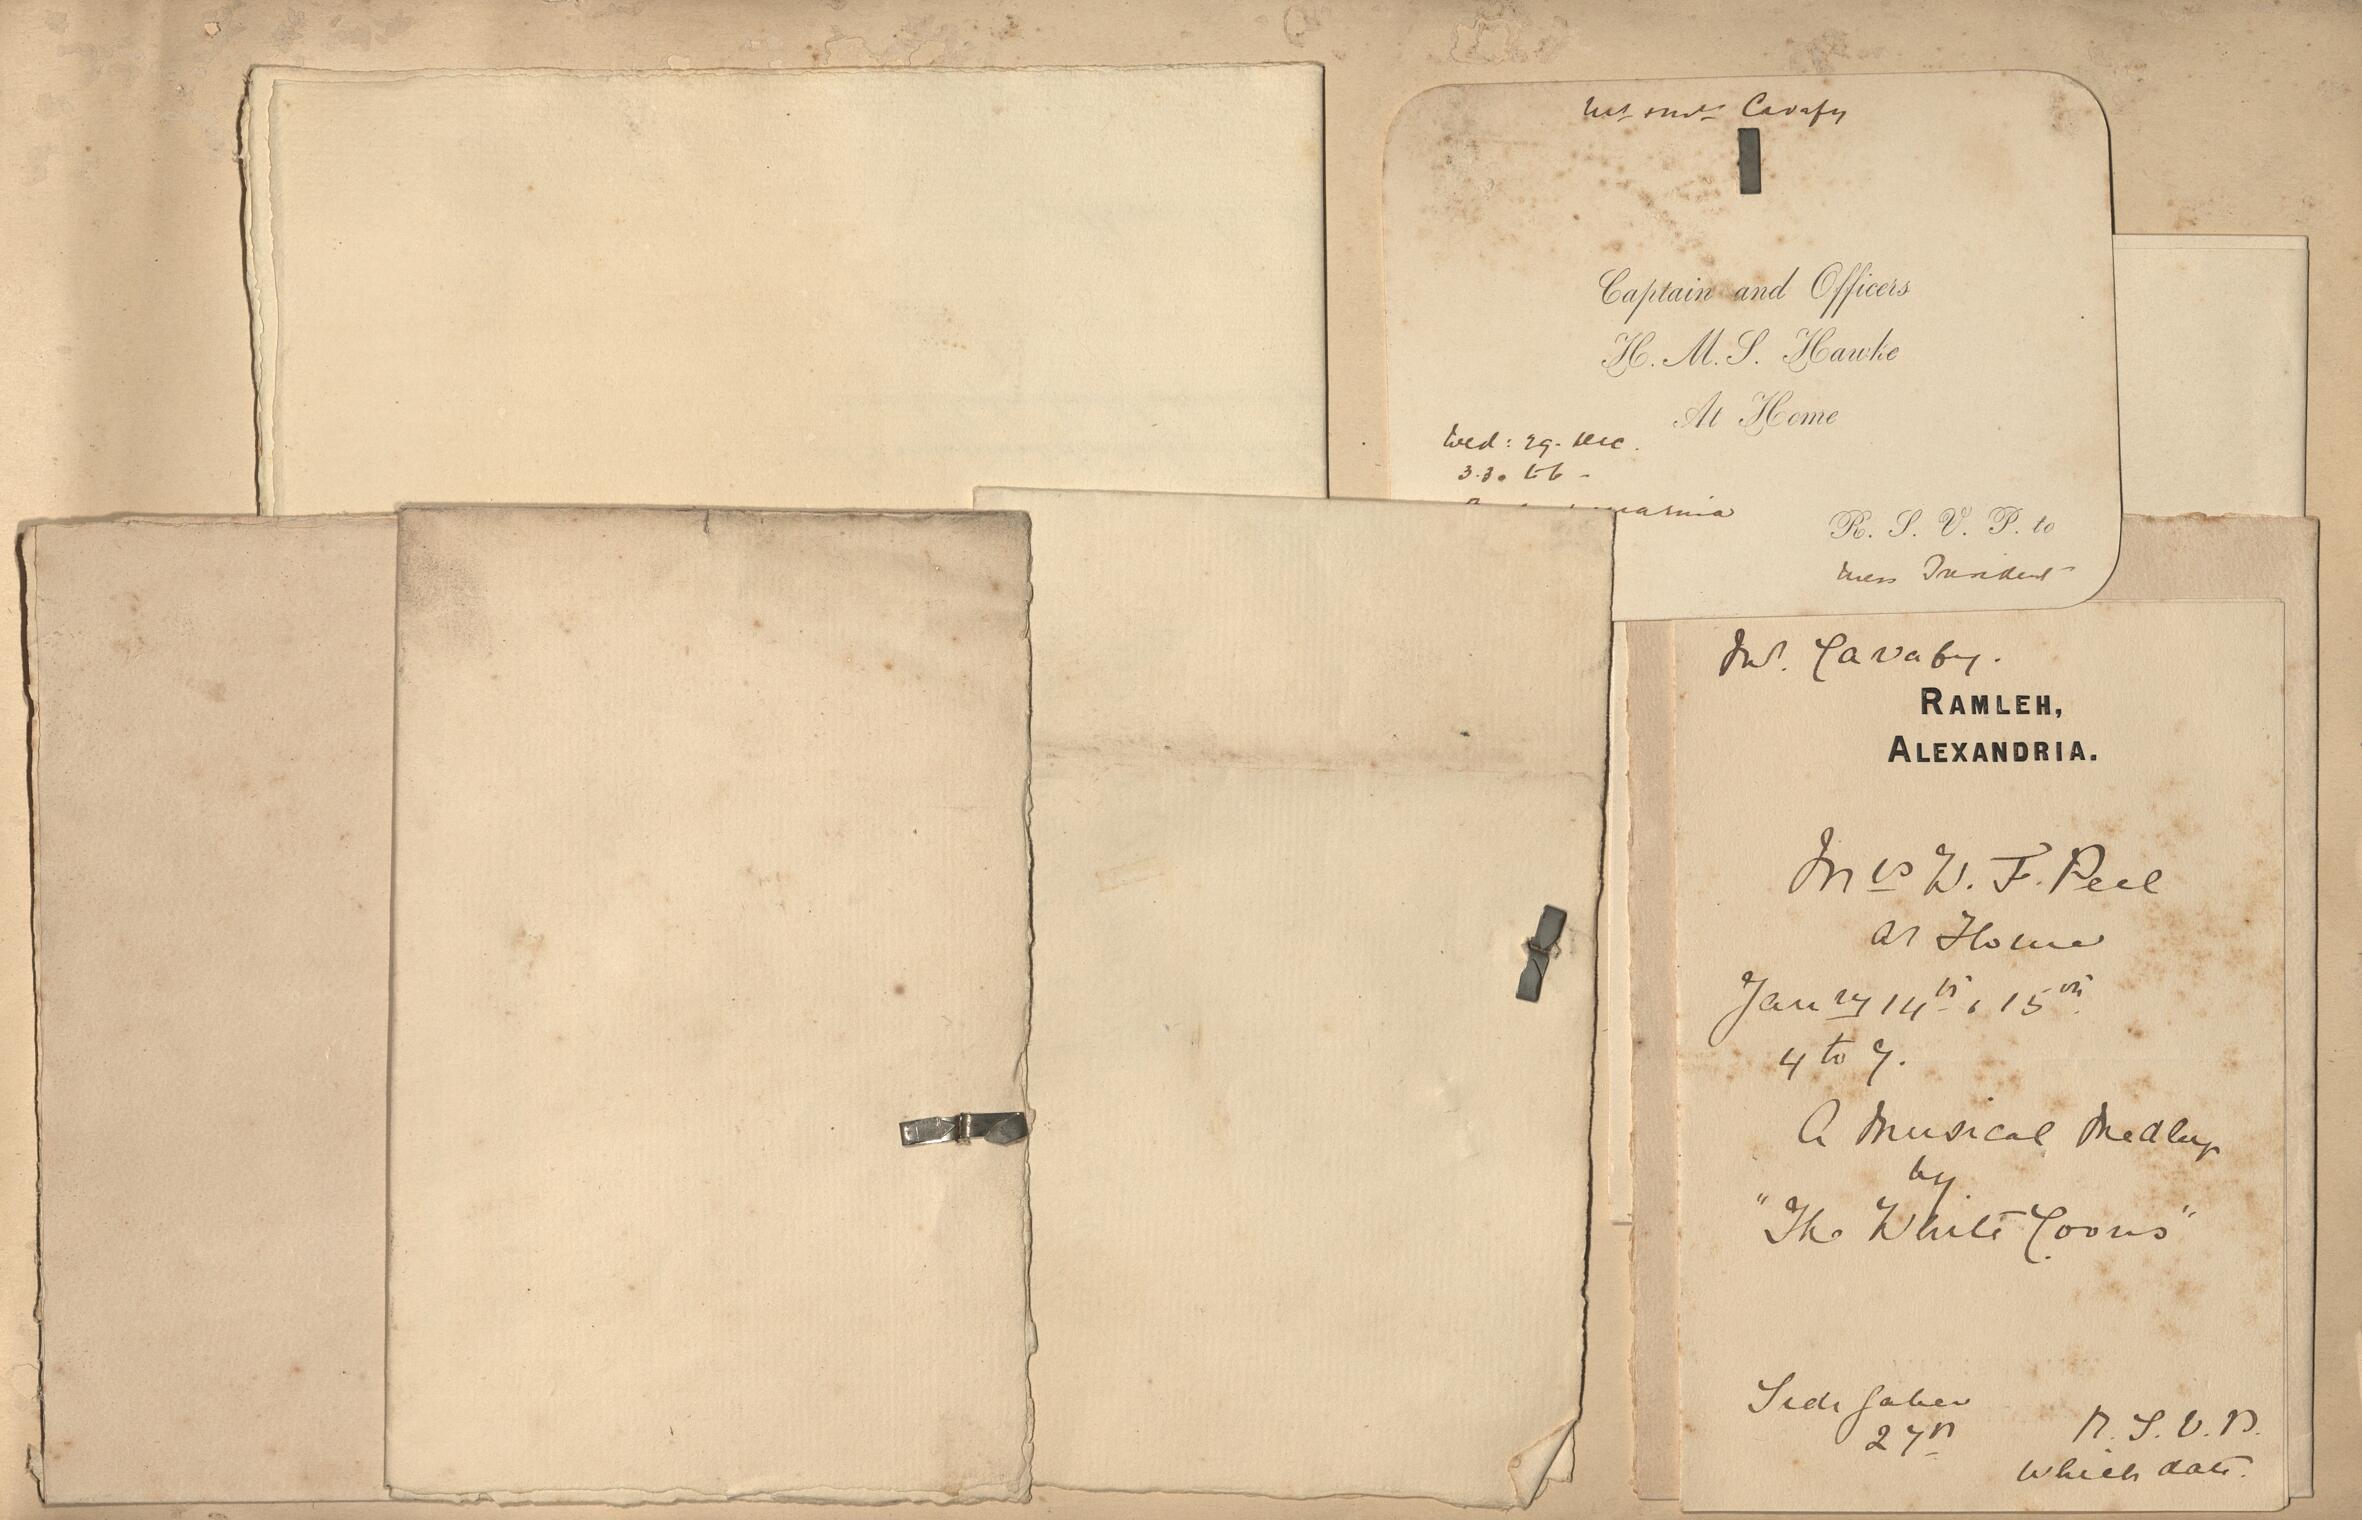 Cavafy
Captain and Officers
H. M. S. Hawke
At Home
Wed: 29. Dec.
3.30 to 6 -
R. S. V. P. to
Mess President
Mr. Cavafy.
RAMLEH,
ALEXANDRIA.
Mrs W. F. Peel
at Home
Janry 14th & 15th
4 to 7.
A Musical Medley
by
"The White Coons"
Sidi Gaber
27th
R. S. V. P.
which date.